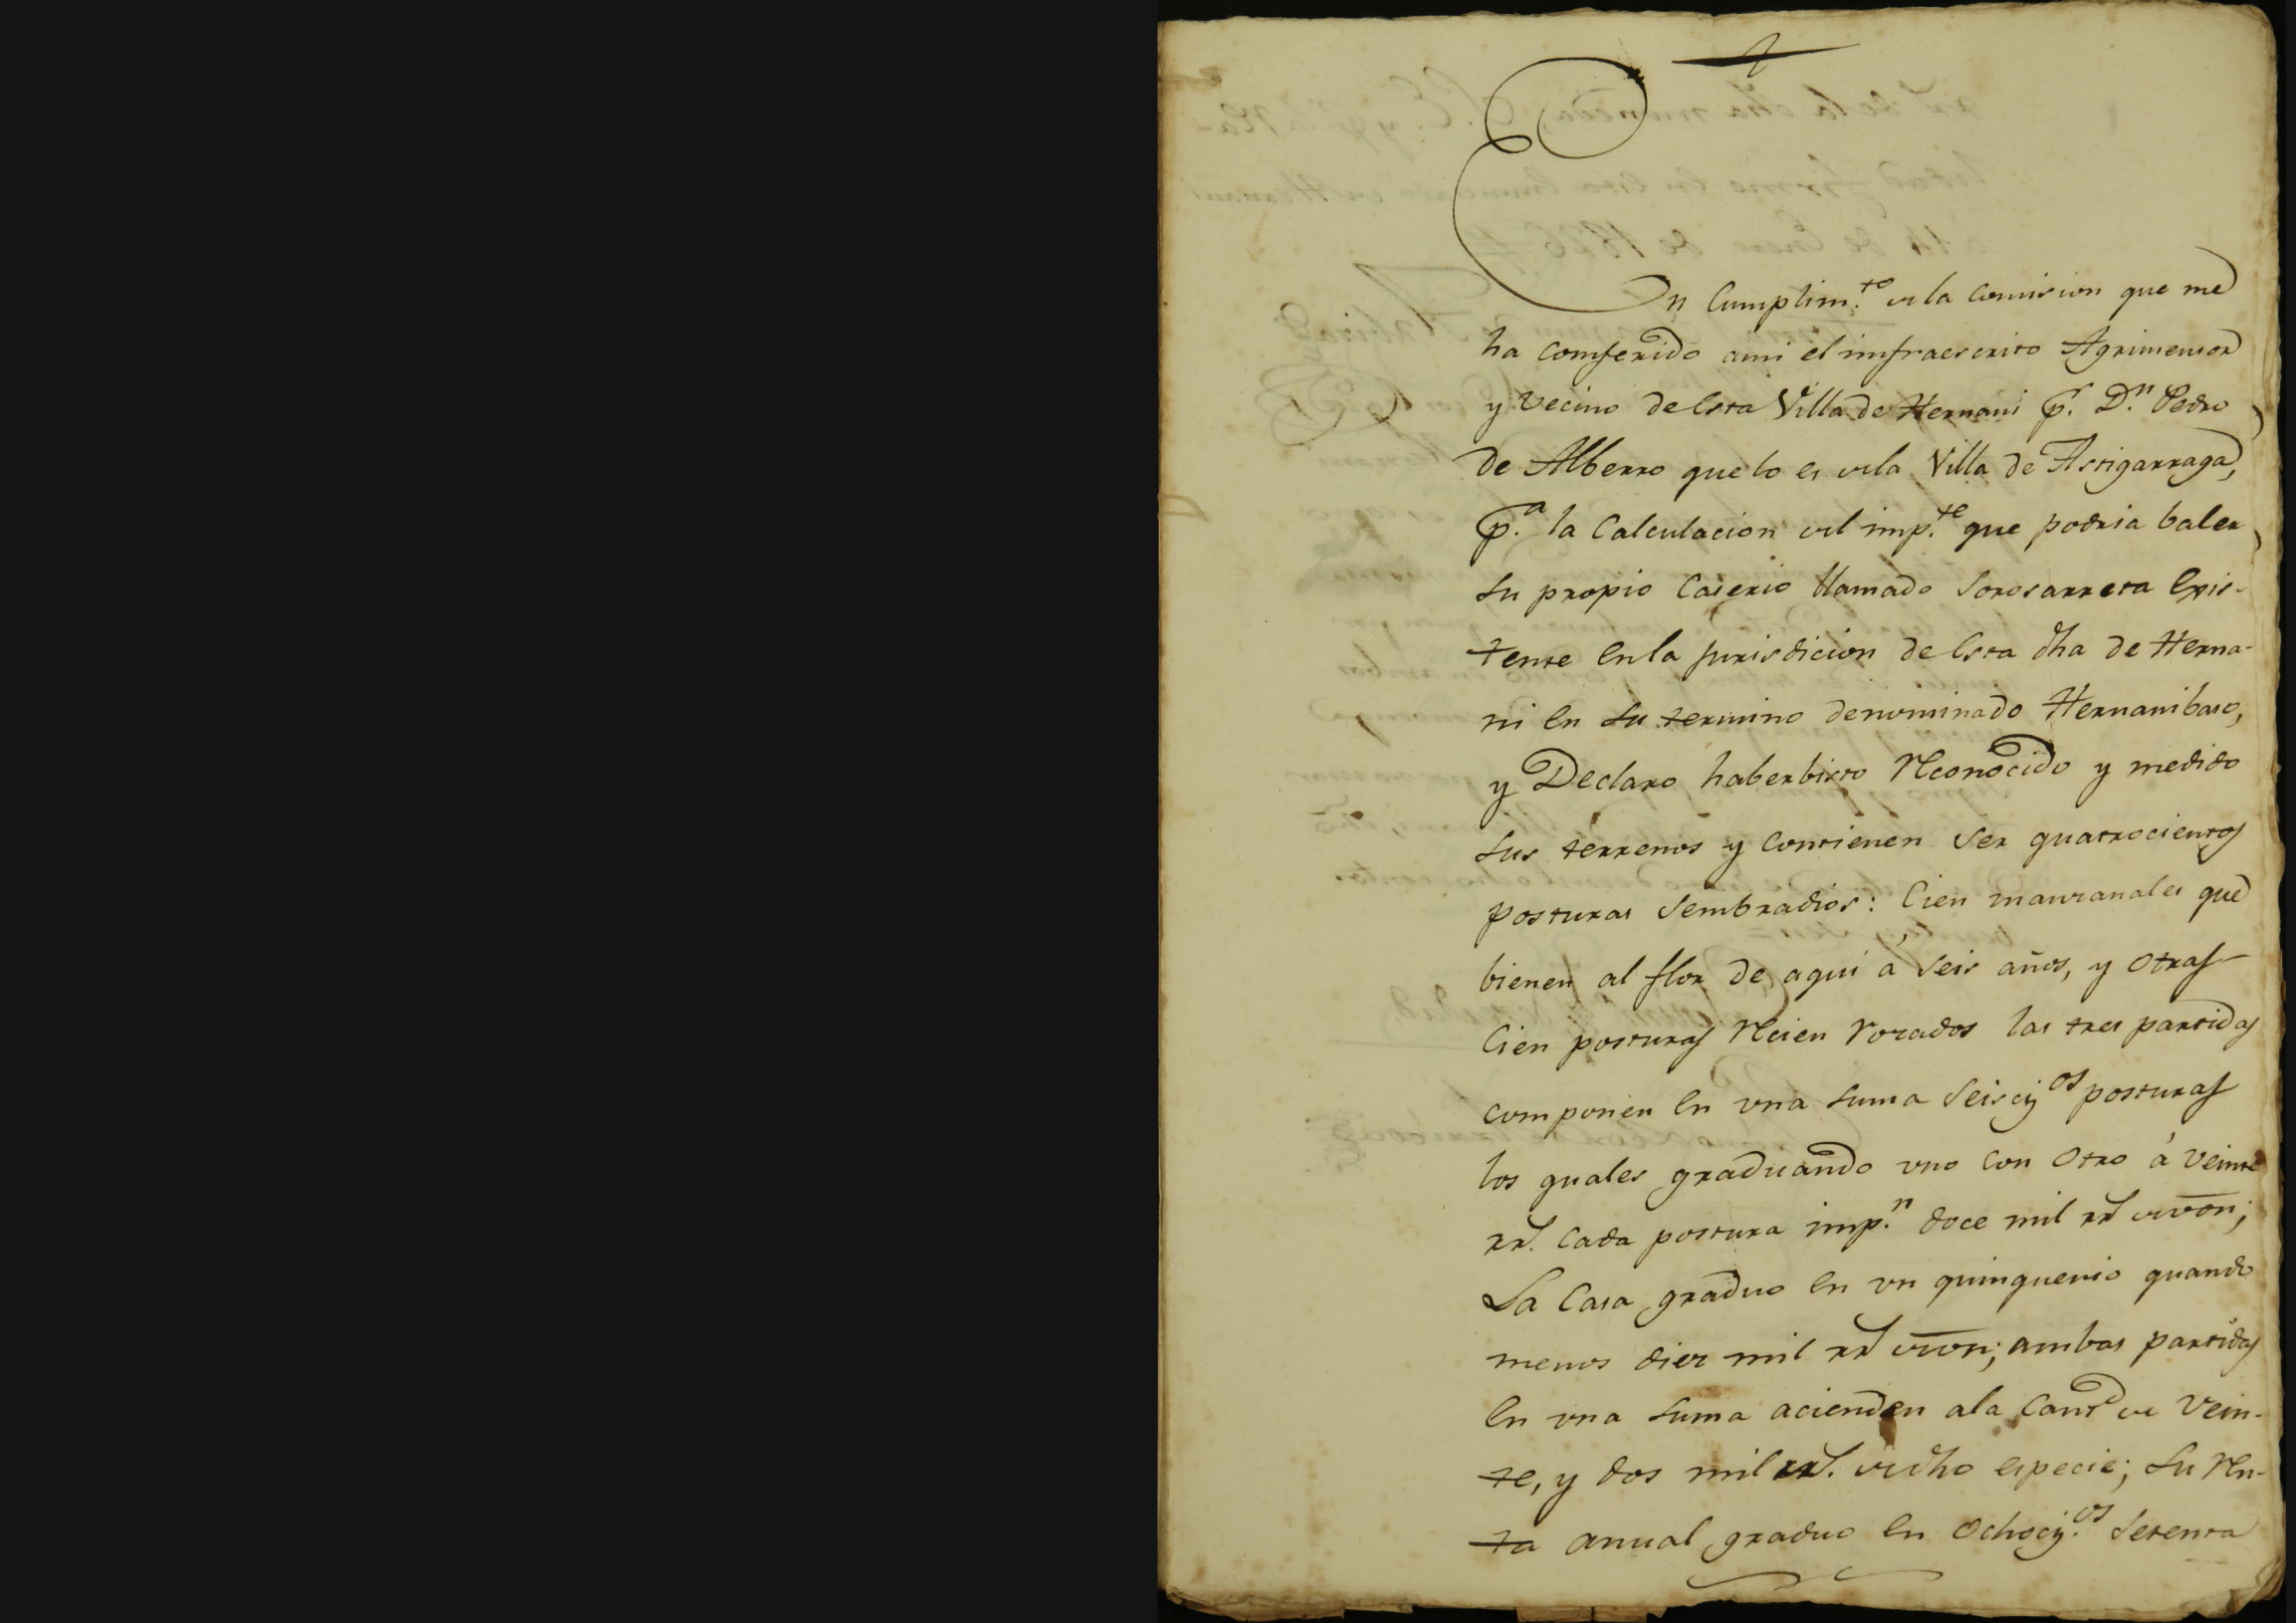 En Cumplim.to de la Comision que me
ha Comferido ami el imfraescrito Agrimensor
y Vecino de Esta Villa de Hernani p.r D.n Pedro
de Alberro que lo es de la Villa de Astigarraga,
p.a la Calculacion del imp.te que podria baler
su propio Caserio llamado Sorosarreta Exis-
tente En la jurisdicion de Esta dha de Herna-
ni En su termino denominado Hernanibaso,
y Declaro haberbisto Reconocido y medido
sus terrenos y Contienen ser quatrocientos
posturas Sembradios: Cien manzanales que
bienen al flor de aqui á Seis años, y otras
Cien posturas Recien Rozados las tres partidas
componen En vna suma Seiscy.os posturas
los quales graduando vno Con Otro á veinte
rrs. Cada postura imp.n doce mil rrs de von;
La Casa graduo En vn quinquenio quando
menos diez mil rrs de von; ambas partidas
En vna suma acienden ala Cantd de Vein-
te, y dos mil rrs. de dho especie; su Ren-
ta anual graduo En Ochocy.os Setenta